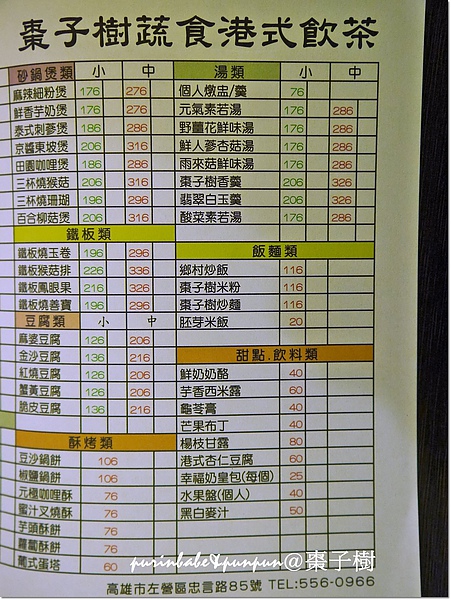 棗子樹蔬食港式飲茶
砂鍋煲類 小 中
麻辣細粉煲 176 276
鮮香芋奶煲 176 276
泰式刺蔘煲 186 286
京醬東坡煲 206 316
田園咖哩煲 186 286
三杯燒猴菇 206 316
三杯燒珊瑚 196 296
百合柳菇煲 206 316
鐵板類
鐵板燒玉卷 196 296
鐵板猴菇排 226 336
鐵板鳳眼果 216 326
鐵板燒善寶 196 296
豆腐類 小 中
麻婆豆腐 126 206
金沙豆腐 136 216
紅燒豆腐 126 206
蟹黃豆腐 126 206
脆皮豆腐 136 216
酥烤類
豆沙鍋餅 106
椒鹽鍋餅 106
元極咖哩酥 76
蜜汁叉燒酥 76
芋頭酥餅 76
蘿蔔酥餅 76
葡式蛋塔 60
湯類 小 中
個人燉盅/羹 76
元氣素若湯 176 286
野薑花鮮味湯 176 286
鮮人蔘杏菇湯 176 286
雨來菇鮮味湯 176 286
棗子樹香羹 206 326
翡翠白玉羹 206 326
酸菜素若湯 176 286
飯麵類
鄉村炒飯 116
棗子樹米粉 116
棗子樹炒麵 116
胚芽米飯 20
甜點.飲料類
鮮奶奶酪 40
芋香西米露 60
龜苓膏 40
芒果布丁 40
楊枝甘露 80
港式杏仁豆腐 60
幸福奶皇包(每個) 25
水果盤(個人) 40
黑白麥汁 50
purinbabe&punpun@棗子樹
高雄市左營區忠言路85號 TEL:556-0966